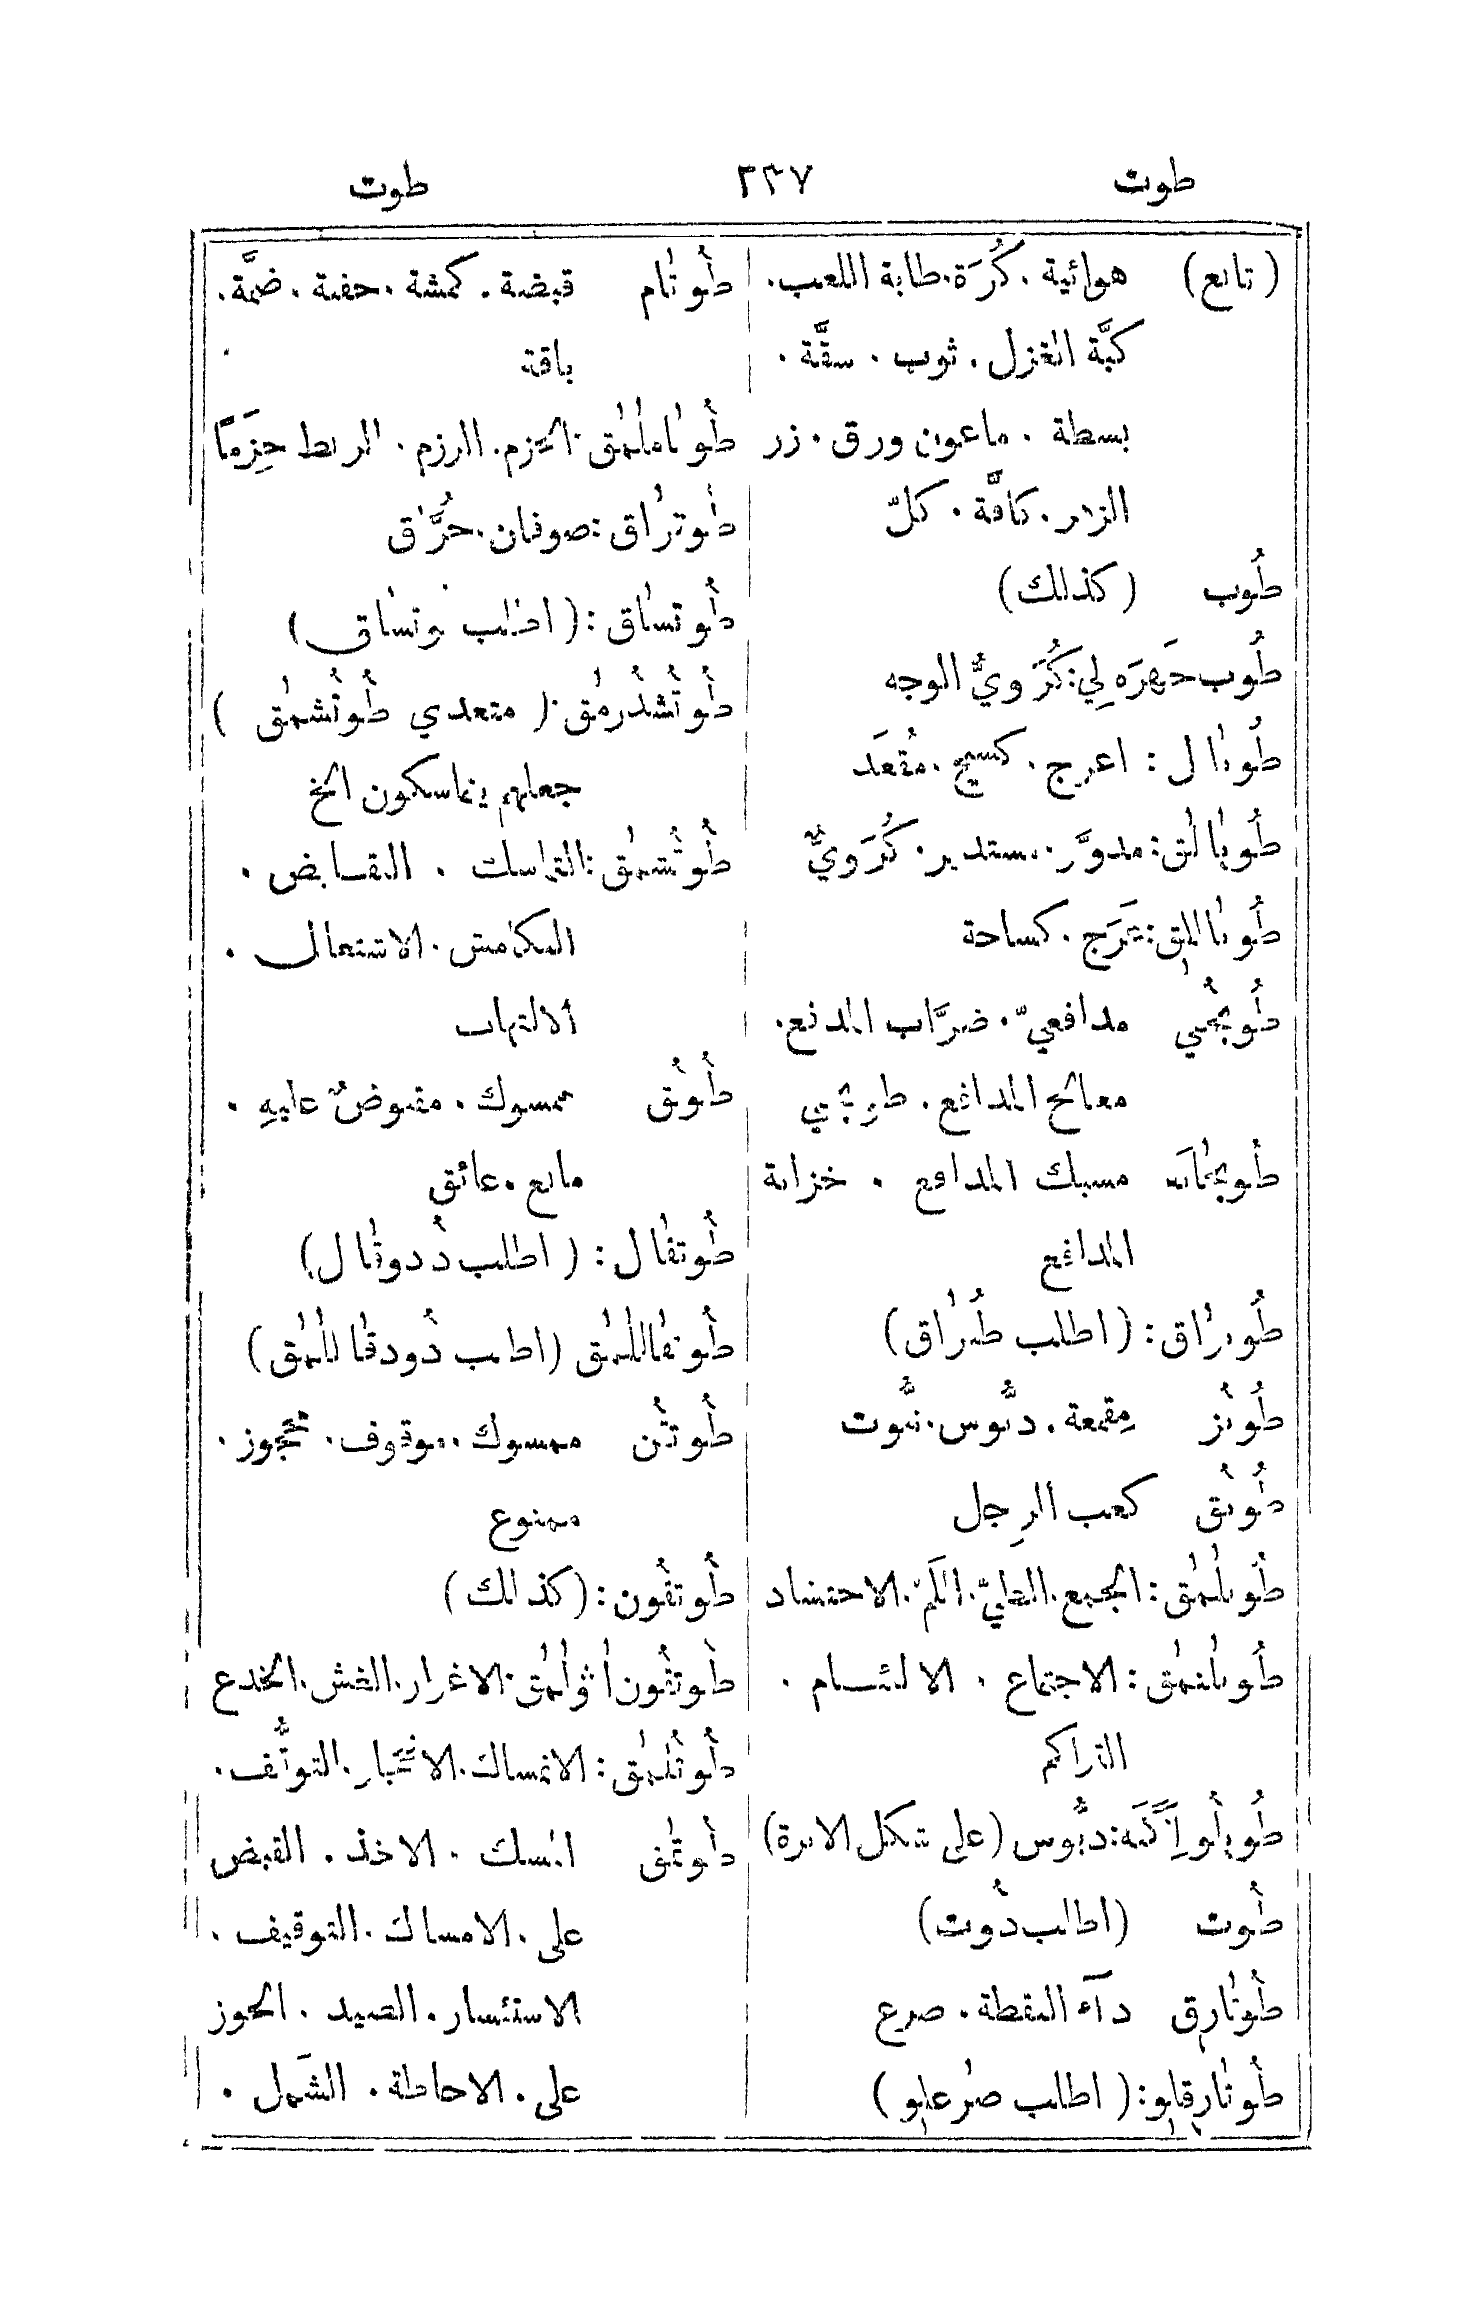 طوت ٣٣٧ طوت
(تابع) هوائية. كُرَة. طابة اللعب.
كبَّة الغزل. ثوب. سقَّة.
بسطة. ماعون ورق. زر
الزار. كافَّة. كلّ
طُوب (كذلك)
طُوب جَهرَه لِي: كُرَويُّ الوجه
طُوبال: اعرج. كسيح. مُقعَد
طُوبالق: مدوَّر. مستدير. كُرَويٌّ
طُوباللق: عَرَج. كساحة
طُوبجي مدافعيّ. ضرَّاب المدفع.
معالج المدافع. طوبجي
طوبخانَه مسبك المدافع. خزانة
المدافع
طُوبراق: (اطلب طُبراق)
طُوبُز مِقمعة. دبُّوس. نبُّوت
طُوبُق كعب الرِجل
طُوبلمق: الجمع. الطيّ. اللَمّ. الاحتشاد
طُوبلنمق: الاجتماع. الالئسام.
التراكم
طُوبلُو اِكَّنَه: دبُّوس (على شكل الابرة)
طُوت (اطلب دُوت)
طُوتارق دآء النقطة. صرع
طُوتارقلو: (اطلب صرعلو)
طُوتام قبضة. كمشة. حفنة. ضمَّة.
باقة
طُوتاملمق: الحزم. الرزم. الربط حِزَمًا
طُوتراق: صوفان. حُرَّاق
طُوتساق: (اطلب وتساق)
طُوتُشدُرمق: (متعدي طُوتُشمق)
جعلهم يتماسكون الخ
طُوتُشمق: التماسك. التقابض.
التكامش. الاشتعال.
الالتهاب
طُوتُق ممسوك. مقبوضٌ عليهِ.
مانع. عائق
طُوتقال: (اطلب دُدوتقال)
طُوتقاللمق (اطلب دُودقاللمق)
طُوتقُن ممسوك. موقوف. محجوز.
ممنوع
طُوتقُون: (كذلك)
طُوتقُون اُلمق: الاغرار. الغش. الخدع
طُوتُلمق: الانمساك. الانحجاز. التوقُّف.
طُوتمق المسك. الاخذ. القبض
على. الامساك. التوقيف.
الاستئسار. الصيد. الحوز
على. الاحاطة. الشَمل.